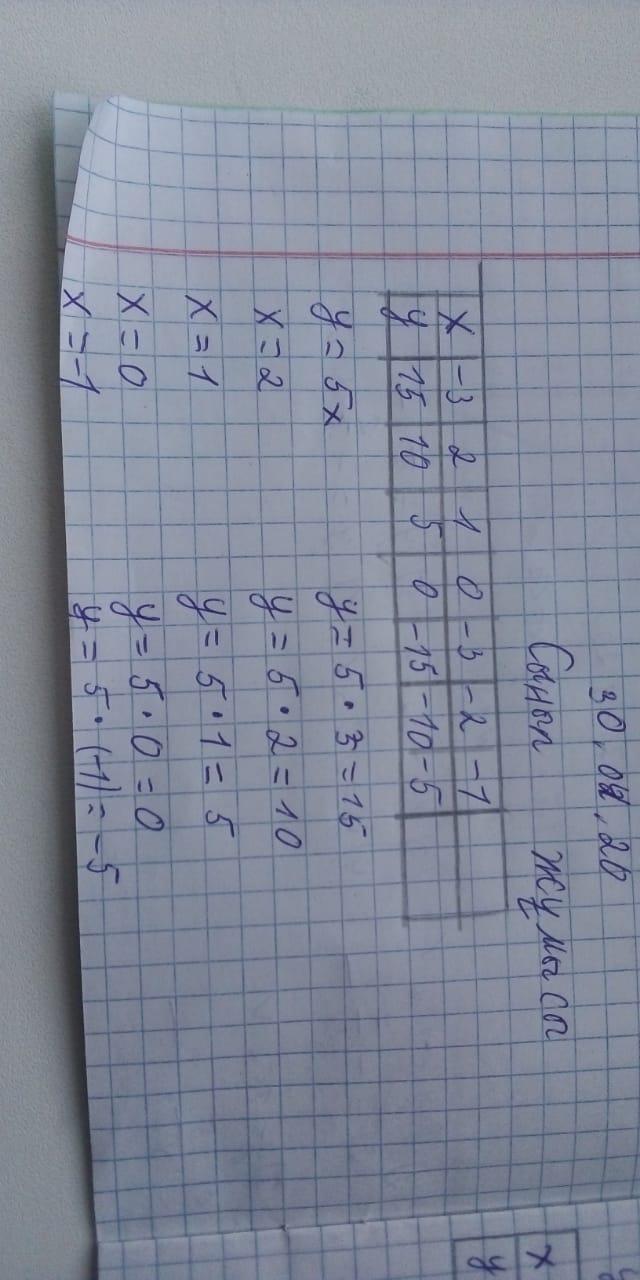 30.04.20
Сынып жұмысы
x -3 2 1 0 -3 -2 -1
y 15 10 5 0 -15 -10 -5
y = 5x y = 5 · 3 = 15
x = 2 y = 5 · 2 = 10
x = 1 y = 5 · 1 = 5
x = 0 y = 5 · 0 = 0
x = -1 y = 5 · (-1) = -5
x
y